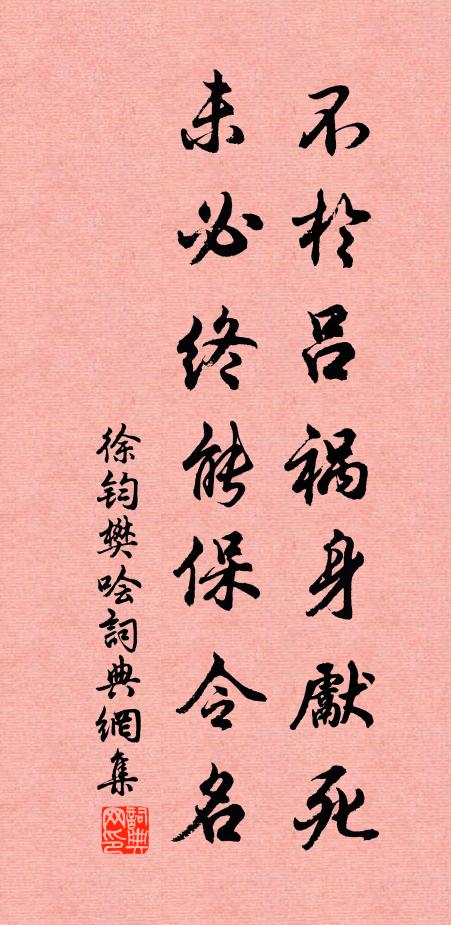 不於呂禍身獻死
未必終能保令名
徐鈞樊噲詞典網集
詞典网印